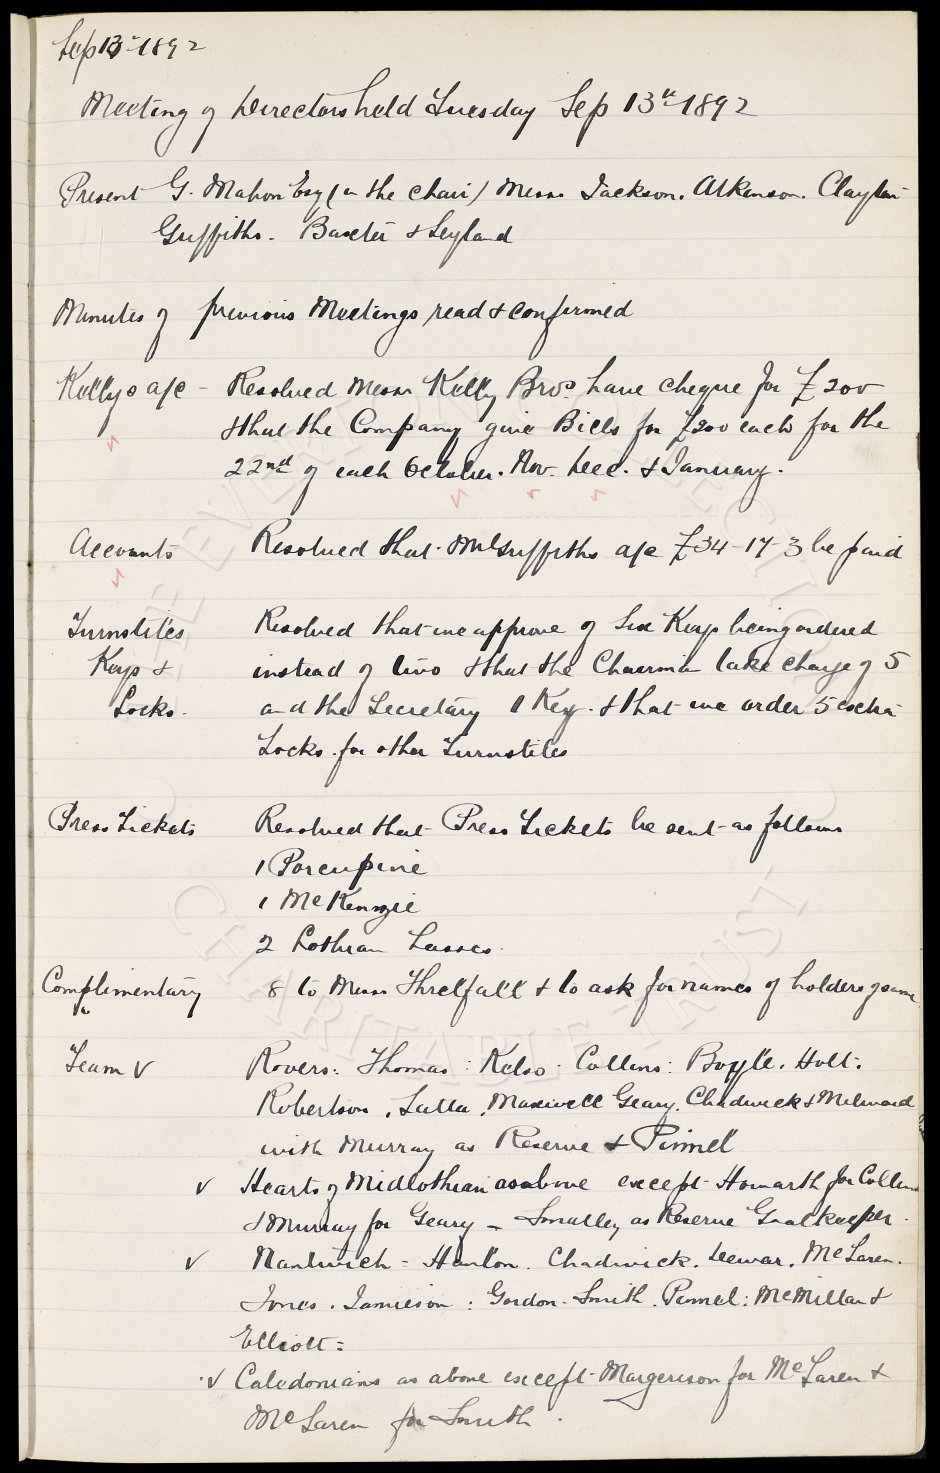 Sep 13th 1892
Meeting of Directors held Tuesday Sep 13th 1892
Present G. Mahon Esq (in the chair) Messrs Jackson. Atkinson. Clayton
Griffiths. Baxter & Leyland
Minutes of previous Meetings read & confirmed
Kellys a/c - Resolved Messrs Kelly Bros. have cheque for £200
& that the Company give Bills for £200 each for the
22nd of each October. Nov. Dec. & January.
Accounts Resolved that Mr Griffiths a/c £34-17-3 be paid
Turnstiles Resolved that we approve of Six Keys being ordered
Keys & instead of two & that the Chairman take charge of 5
Locks. and the Secretary 1 Key. & that we order 5 extra
Locks for other Turnstiles
Press Tickets Resolved that Press Tickets be sent as follows
1 Porcupine
1 McKenzie
2 Lothian Lasses.
Complimentary 8 to Messrs Threlfall & to ask for names of holders of same
Team Rovers: Thomas: Kelso. Collins: Boyle. Holt.
Robertson. Latta. Maxwell Geary. Chadwick & Milward
with Murray as Reserve & Pinnel
Hearts of Midlothian as above except Howarth for Collins
& Murray for Geary - Smalley as Reserve Goalkeeper.
Nantwich = Hanlon. Chadwick. Dewar. McLaren.
Jones. Jamieson: Gordon. Smith. Pinnel: McMillan &
Elliott =
Caledonians as above except Margerison for McLaren &
McLaren for Smith.
THE EVERTON COLLECTION
CHARITABLE TRUST